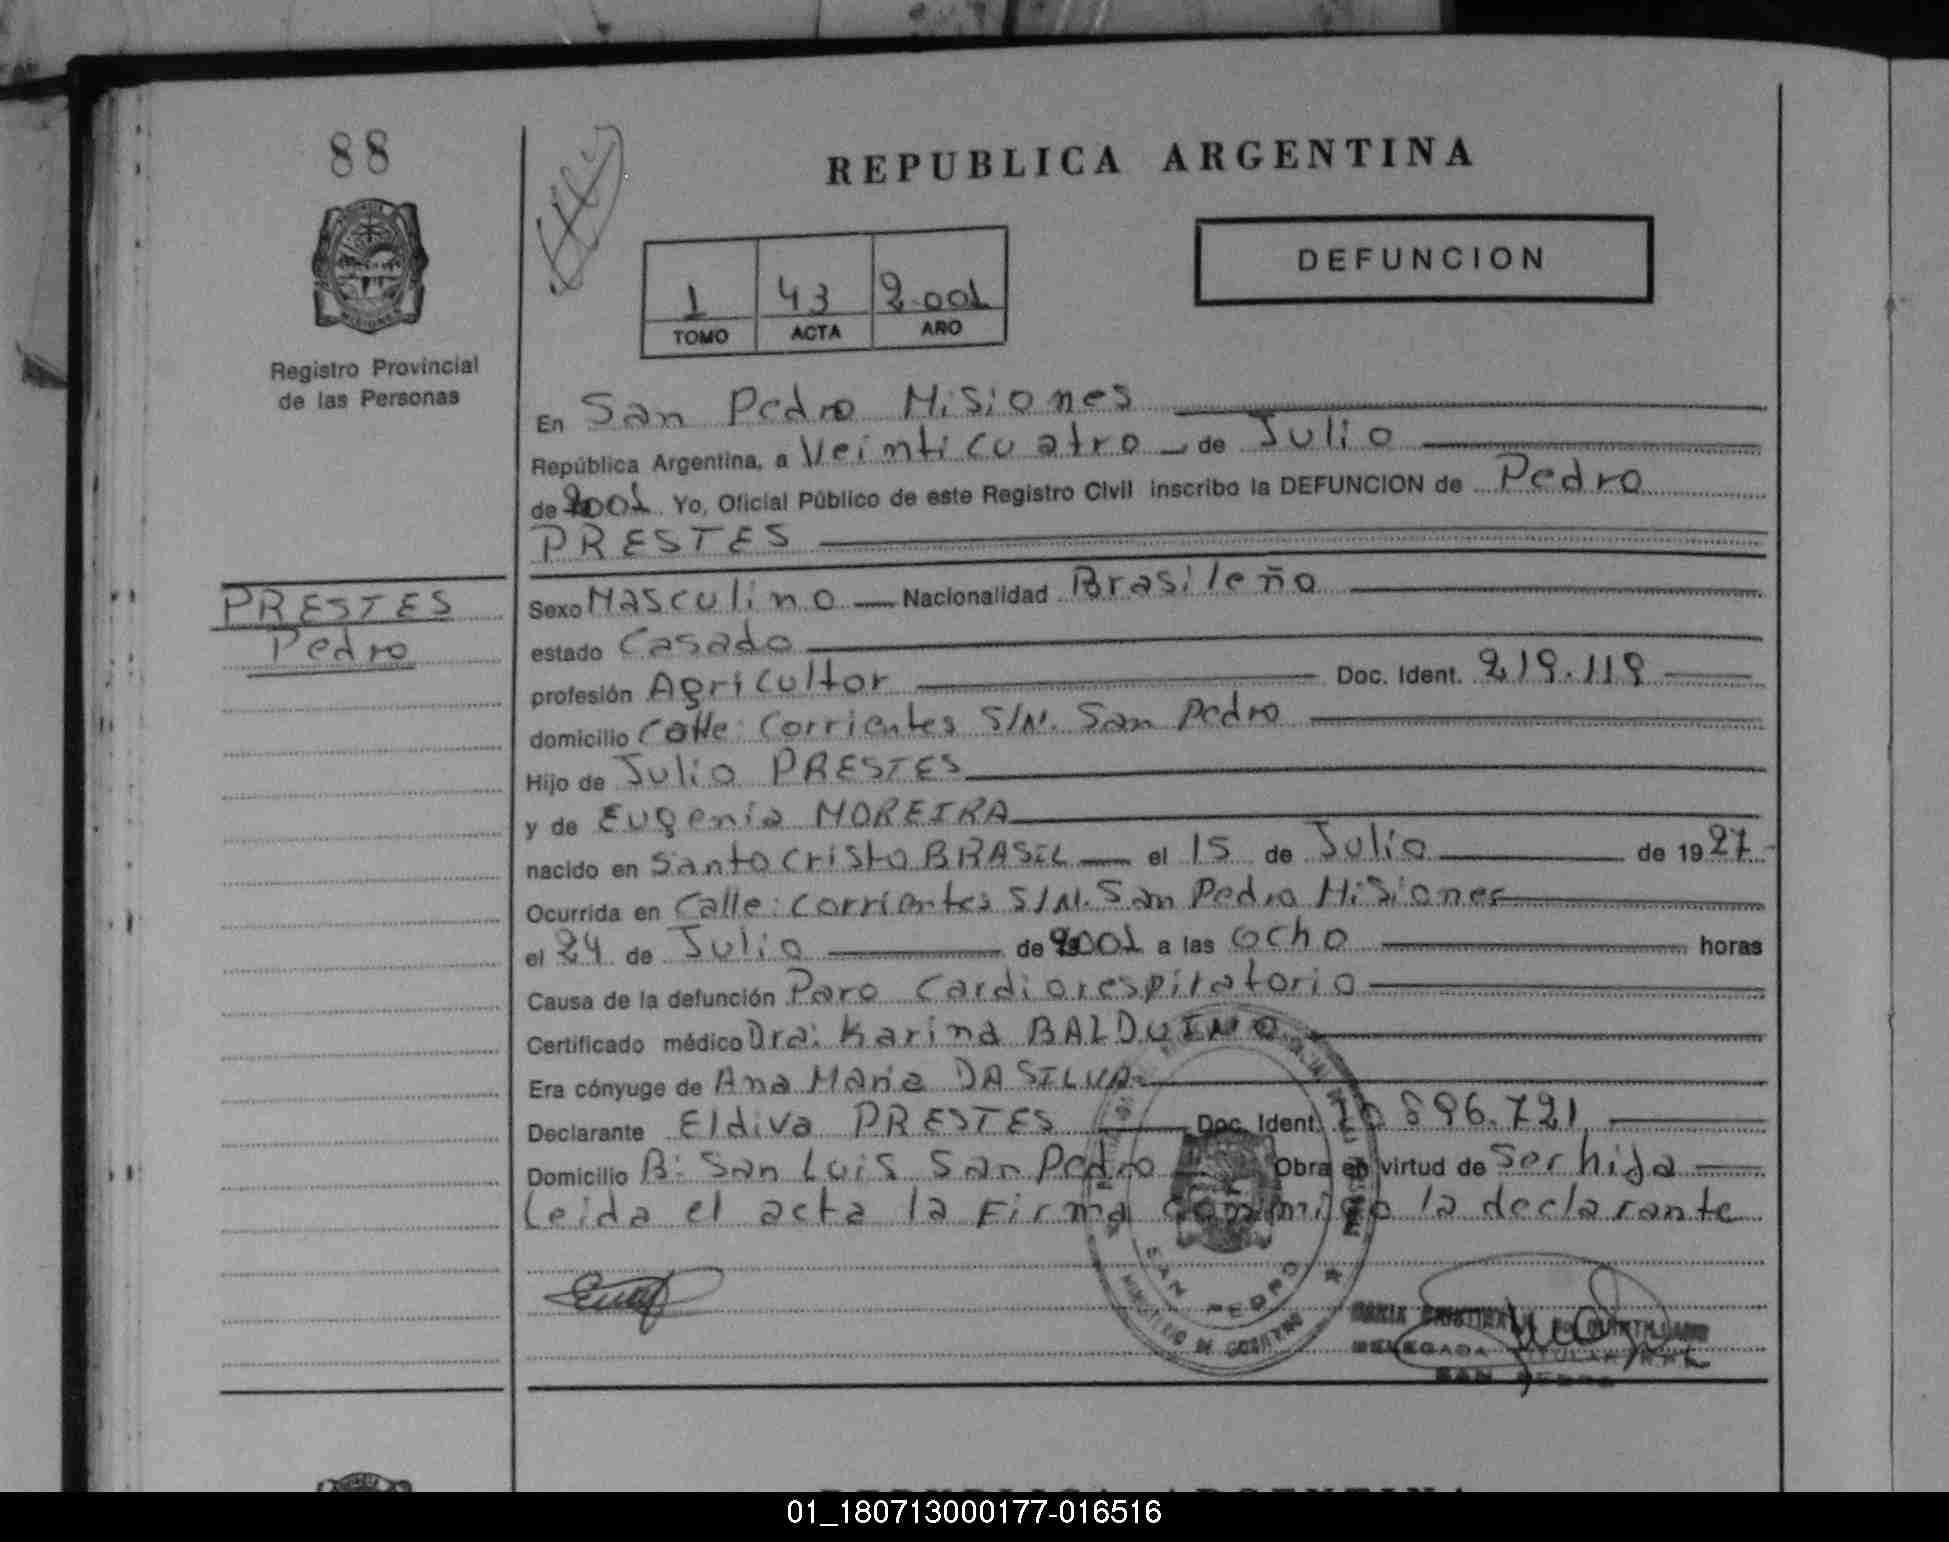 88
REPUBLICA ARGENTINA
DEFUNCION
1 43 2.001
TOMO ACTA AÑO
Registro Provincial
de las Personas
En San Pedro Misiones
República Argentina, a Veinticuatro de Julio
de 2001 Yo, Oficial Público de este Registro Civil inscribo la DEFUNCION de Pedro
PRESTES
PRESTES
Pedro
Sexo Masculino Nacionalidad Brasileño
estado Casado
profesión Agricultor Doc. Ident. 219.119
domicilio Calle: Corrientes S/N. San Pedro
Hijo de Julio PRESTES
y de Eugenia MOREIRA
nacido en Santo Cristo BRASIL el 15 de Julio de 1927
Ocurrida en Calle: Corrientes S/N. San Pedro Misiones
el 24 de Julio de 2001 a las ocho horas
Causa de la defunción Paro Cardiorespiratorio
Certificado médico Dra: Karina BALDUINO
Era cónyuge de Ana Maria DA SILVA
Declarante Eldiva PRESTES Doc. Ident. 896.721
Domicilio B: San Luis San Pedro Obra en virtud de Ser hija
Leida el acta la Firma conmigo la declarante
SAN PEDRO
MINISTERIO DE GOBIERNO
MARIA CRISTINA
DELEGADA TITULAR R.P.P.
SAN PEDRO
REPUBLICA ARGENTINA
01_180713000177-016516